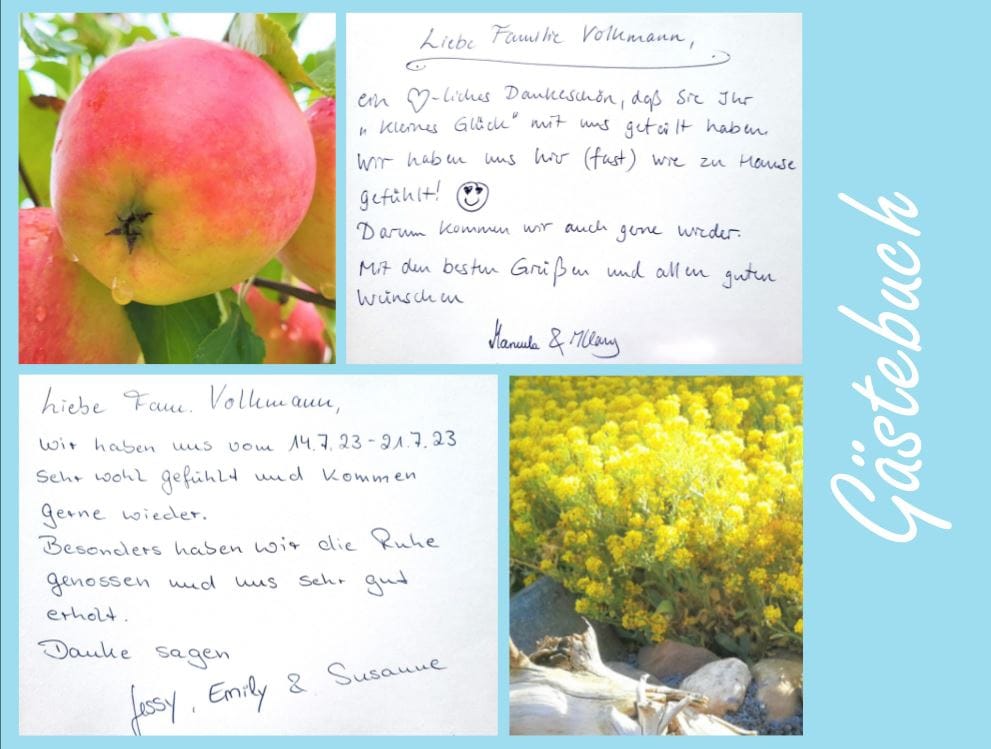 Liebe Familie Volkmann,
ein ♡-liches Dankeschön, daß Sie Ihr
"kleines Glück" mit uns geteilt haben.
Wir haben uns hier (fast) wie zu Hause
gefühlt!
Darum kommen wir auch gerne wieder.
Mit den besten Grüßen und allen guten
Wünschen
Manuela &
Liebe Fam. Volkmann,
Wir haben uns vom 14.7.23-21.7.23
sehr wohl gefühlt und kommen
gerne wieder.
Besonders haben wir die Ruhe
genossen und uns sehr gut
erholt.
Danke sagen
Jessy, Emily & Susanne
Gästebuch